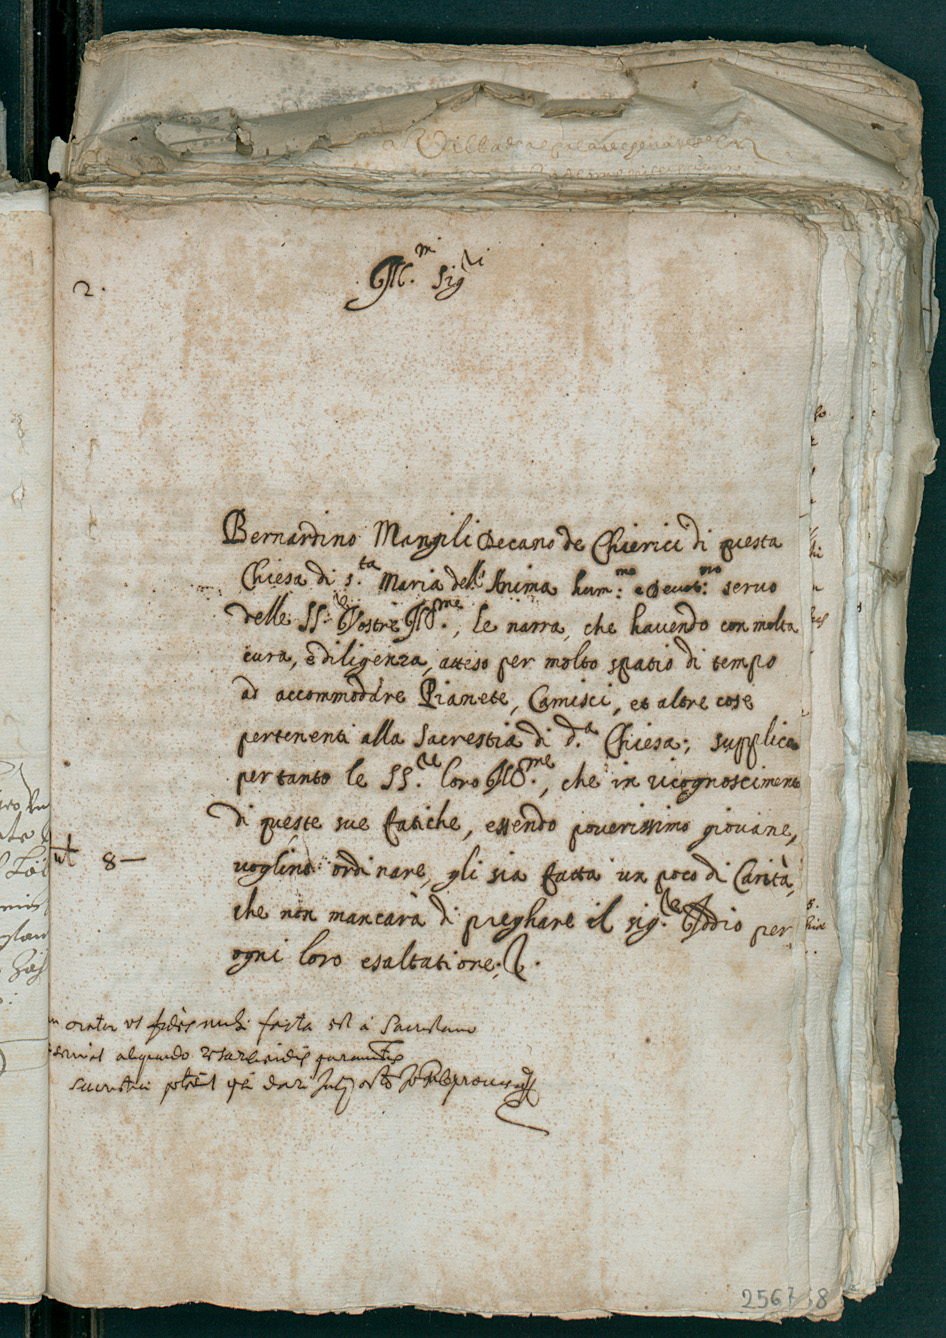 2.
Ill.mi Sig.ri
Bernardino Mangili Decano de Chierici di questa
Chiesa di S.ta Maria dell'Anima hum:mo e Devot:mo servo
delle SS.rie Vostre Ill.me, le narra, che havendo con molta
cura, e diligenza, atteso per molto spatio di tempo
ad accommodare Pianete, Camisci, et altre cose
pertenenti alla Sacrestia di d.a Chiesa; supplica
per tanto le SS.rie loro Ill.me, che in ricognosciment
di queste sue fatiche, essendo poverissimo giovane,
voglino ordinare, gli sia fatta un poco di Carità,
che non mancarà di preghare il sig.re Iddio per
ogni loro esaltatione.
8 —
orator ut fides mihi facta est a Sacrista
servit aliquando
dari
2567 8